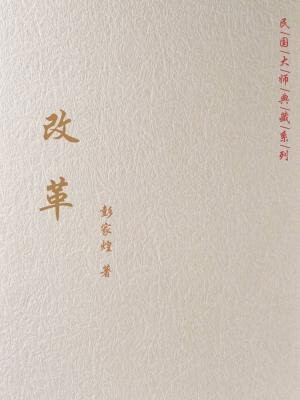 民国大师典藏系列
改革
彭家煌 著